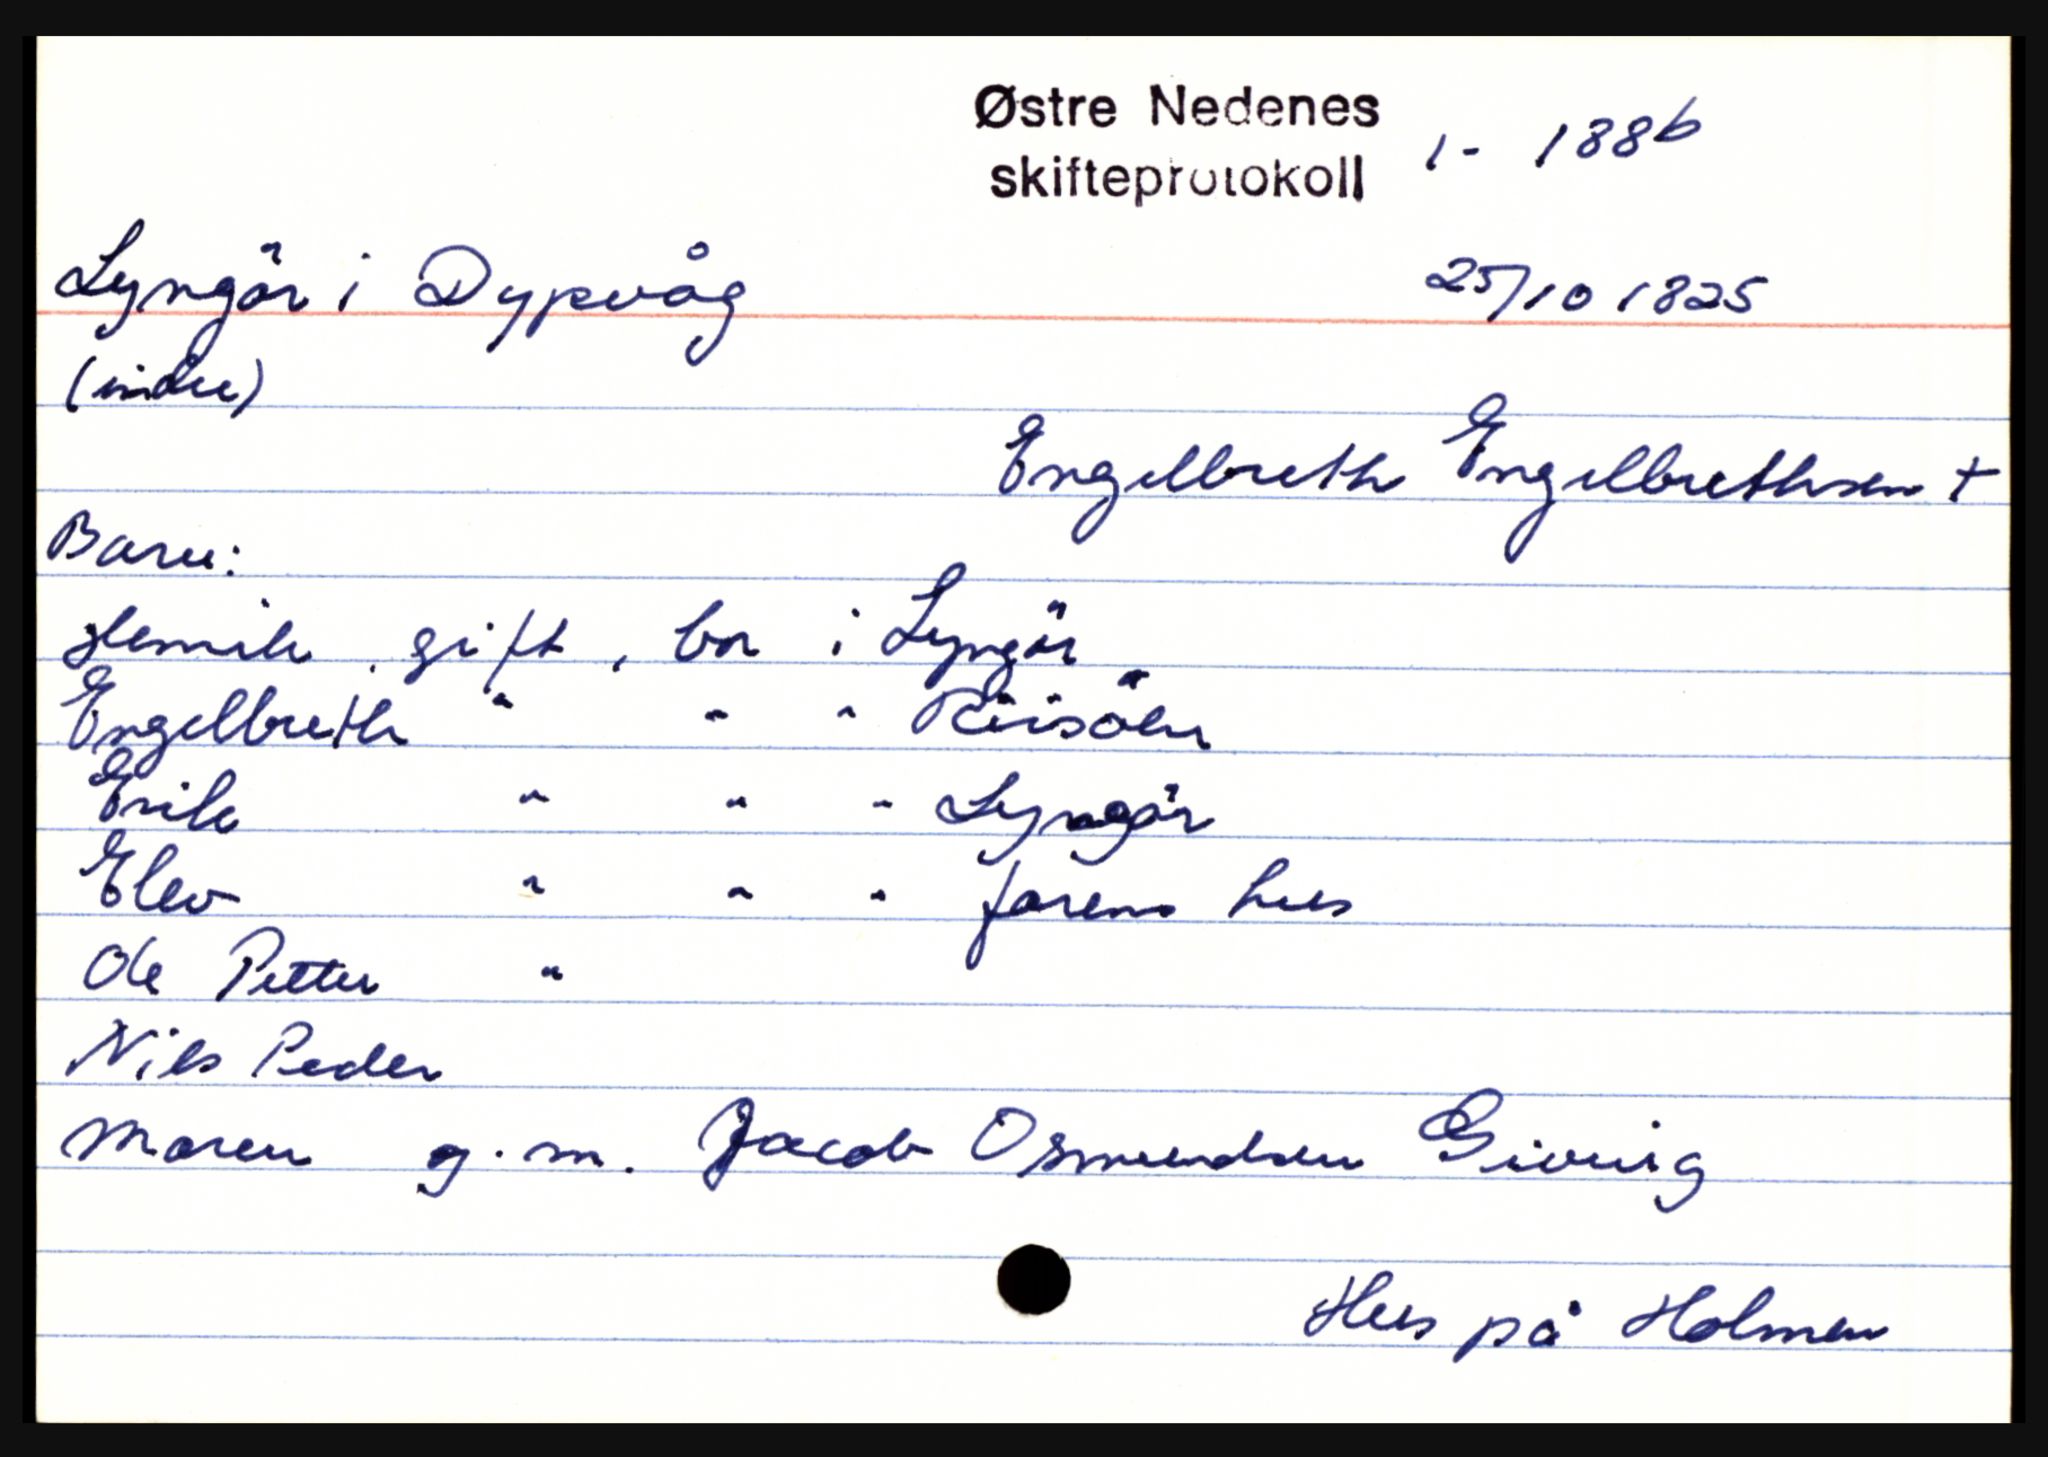 Østre Nedenes
skifteprotokoll 1- 188b
Lyngör i Dypvåg 25/10 1825
(indre)
Engelbreth Engelbrethsen +
Barn:
Henrik, gift, bor i Lyngör
Engelbreth " " " Riisöen
Erik " " " Lyngör
Elev " " " farens hus
Ole Petter "
Nils Peder
Maren g. m. Jacob Osmundsen Giving
Hus på Holmen